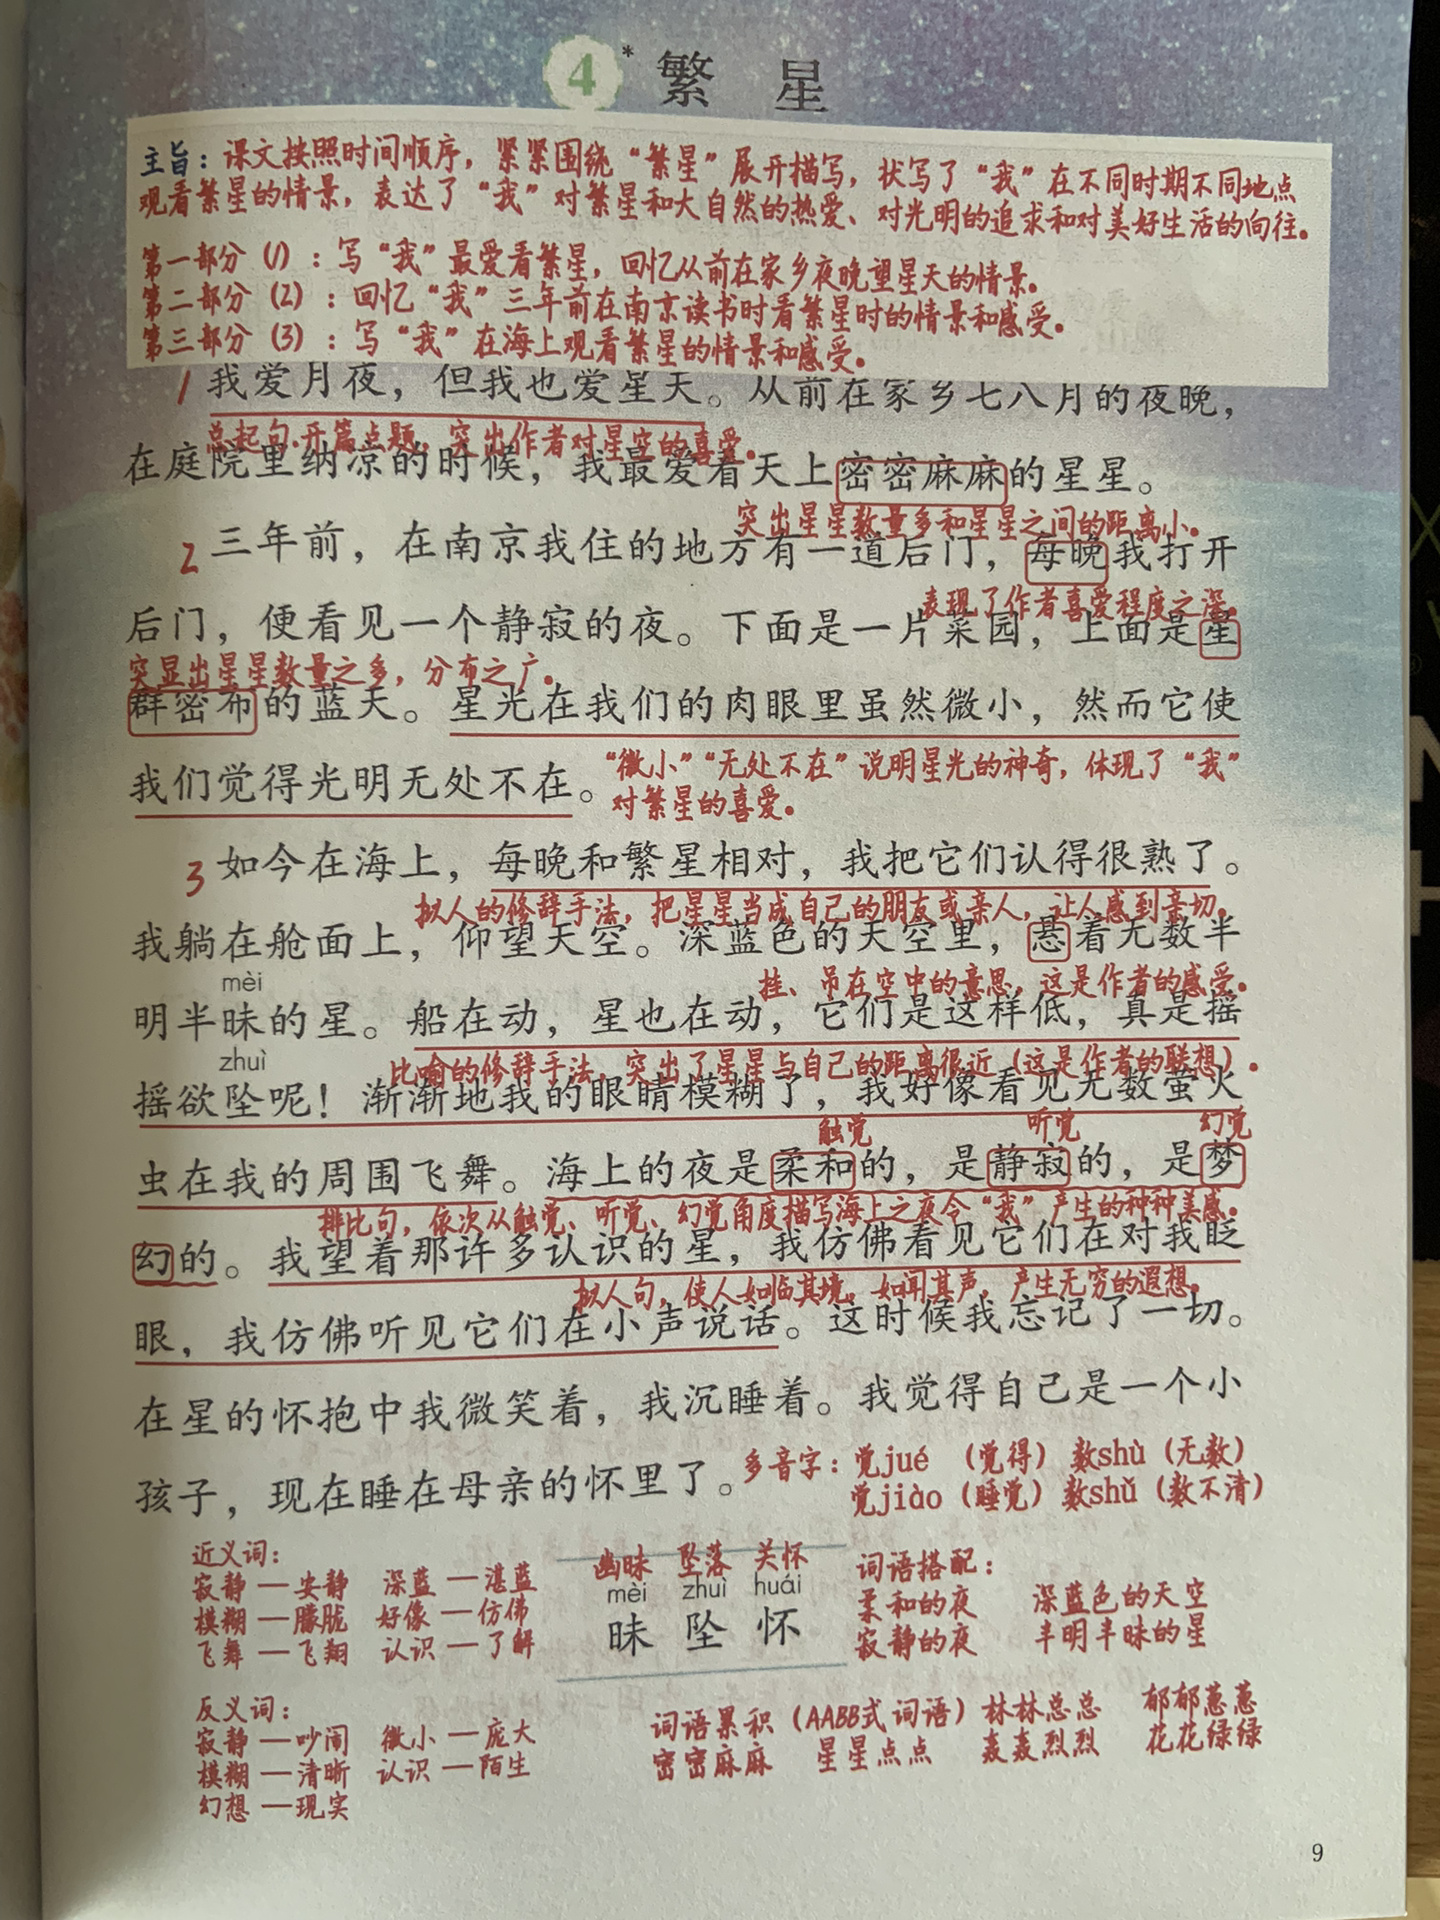 4* 繁 星
主旨：课文按照时间顺序，紧紧围绕“繁星”展开描写，状写了“我”在不同时期不同地点
观看繁星的情景，表达了“我”对繁星和大自然的热爱、对光明的追求和对美好生活的向往。
第一部分（1）：写“我”最爱看繁星，回忆从前在家乡夜晚望星天的情景。
第二部分（2）：回忆“我”三年前在南京读书时看繁星时的情景和感受。
第三部分（3）：写“我”在海上观看繁星的情景和感受。
1 我爱月夜，但我也爱星天。从前在家乡七八月的夜晚，
总起句.开篇点题，突出作者对星空的喜爱。
在庭院里纳凉的时候，我最爱看天上密密麻麻的星星。
突出星星数量多和星星之间的距离小。
2 三年前，在南京我住的地方有一道后门，每晚我打开
表现了作者喜爱程度之深。
后门，便看见一个静寂的夜。下面是一片菜园，上面是星
突显出星星数量之多，分布之广。
群密布的蓝天。星光在我们的肉眼里虽然微小，然而它使
我们觉得光明无处不在。
“微小”“无处不在”说明星光的神奇，体现了“我”
对繁星的喜爱。
3 如今在海上，每晚和繁星相对，我把它们认得很熟了。
拟人的修辞手法，把星星当成自己的朋友或亲人，让人感到亲切。
我躺在舱面上，仰望天空。深蓝色的天空里，悬着无数半
挂、吊在空中的意思，这是作者的感受。
mèi
明半昧的星。船在动，星也在动，它们是这样低，真是摇
zhuì
比喻的修辞手法，突出了星星与自己的距离很近（这是作者的联想）。
摇欲坠呢！渐渐地我的眼睛模糊了，我好像看见无数萤火
触觉 听觉 幻觉
虫在我的周围飞舞。海上的夜是柔和的，是静寂的，是梦
排比句，依次从触觉、听觉、幻觉角度描写海上之夜令“我”产生的种种美感。
幻的。我望着那许多认识的星，我仿佛看见它们在对我眨
拟人句，使人如临其境，如闻其声，产生无穷的遐想。
眼，我仿佛听见它们在小声说话。这时候我忘记了一切。
在星的怀抱中我微笑着，我沉睡着。我觉得自己是一个小
孩子，现在睡在母亲的怀里了。
多音字：觉jué （觉得） 数shù（无数）
觉jiào（睡觉）数shǔ（数不清）
近义词：
寂静—安静 深蓝—湛蓝
模糊—朦胧 好像—仿佛
飞舞—飞翔 认识—了解
幽昧 坠落 关怀
mèi zhuì huái
昧 坠 怀
词语搭配：
柔和的夜 深蓝色的天空
寂静的夜 半明半昧的星
反义词：
寂静—吵闹 微小—庞大
模糊—清晰 认识—陌生
幻想—现实
词语累积（AABB式词语）林林总总 郁郁葱葱
密密麻麻 星星点点 轰轰烈烈 花花绿绿
9